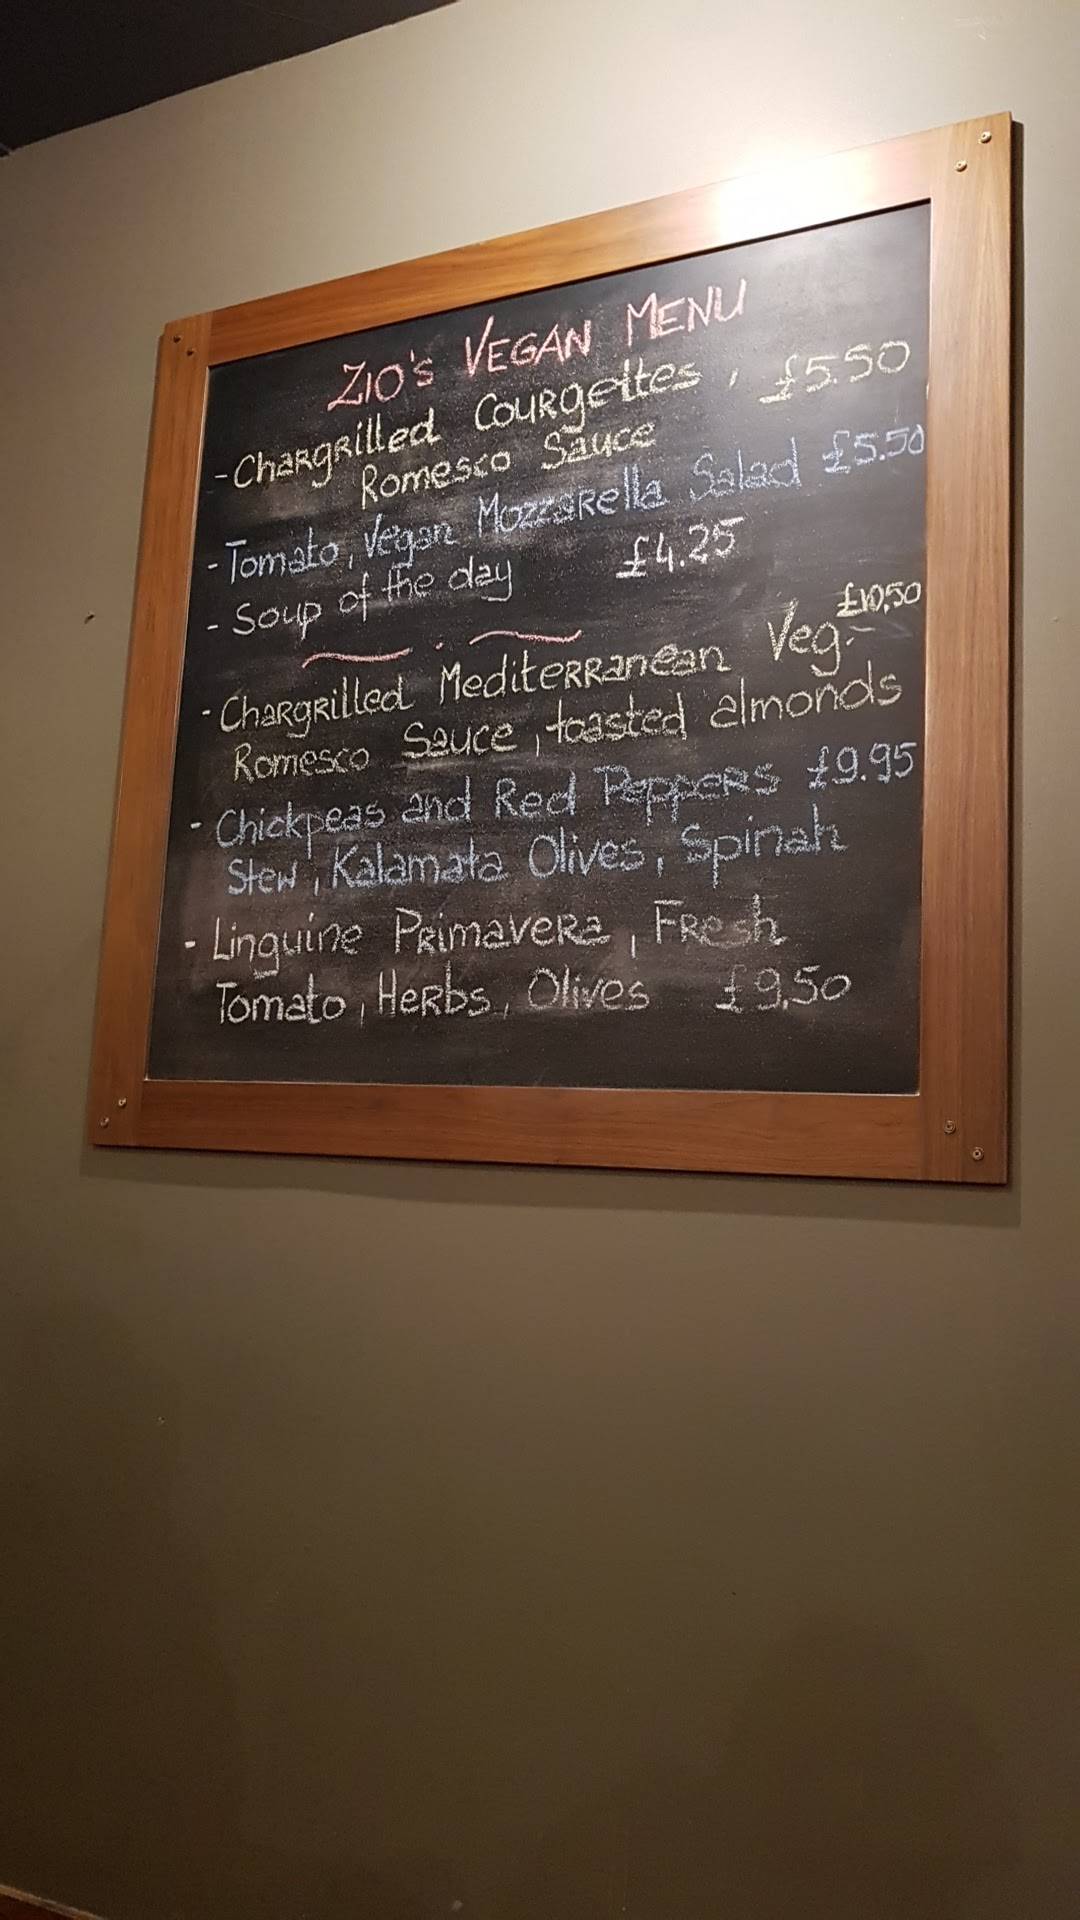 Zio's Vegan Menu
- Chargrilled Courgettes, £5.50
Romesco Sauce
- Tomato, Vegan Mozzarella Salad £5.50
- Soup of the day £4.25
- Chargrilled Mediterranean Veg. £10,50
Romesco Sauce, toasted almonds
- Chickpeas and Red Peppers £9.95
Stew, Kalamata Olives, Spinah
- Linguine Primavera, Fresh
Tomato, Herbs, Olives £9,50